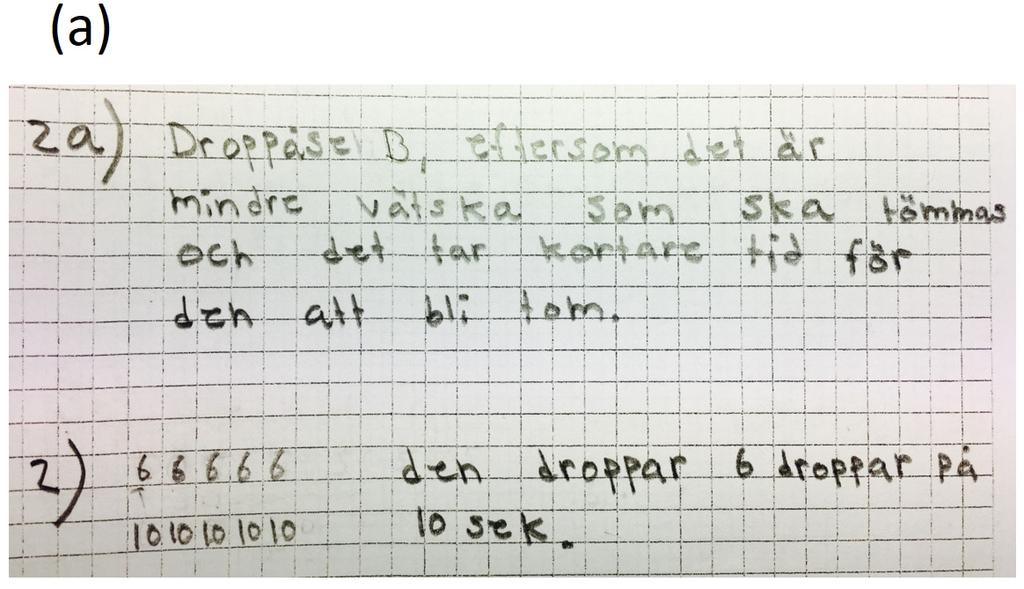 (a)
2a) Droppåse B, eftersom det är
mindre vätska som ska tömmas
och det tar kortare tid för
den att bli tom.
2) 6 6 6 6 6 den droppar 6 droppar på
10 10 10 10 10 10 sek.